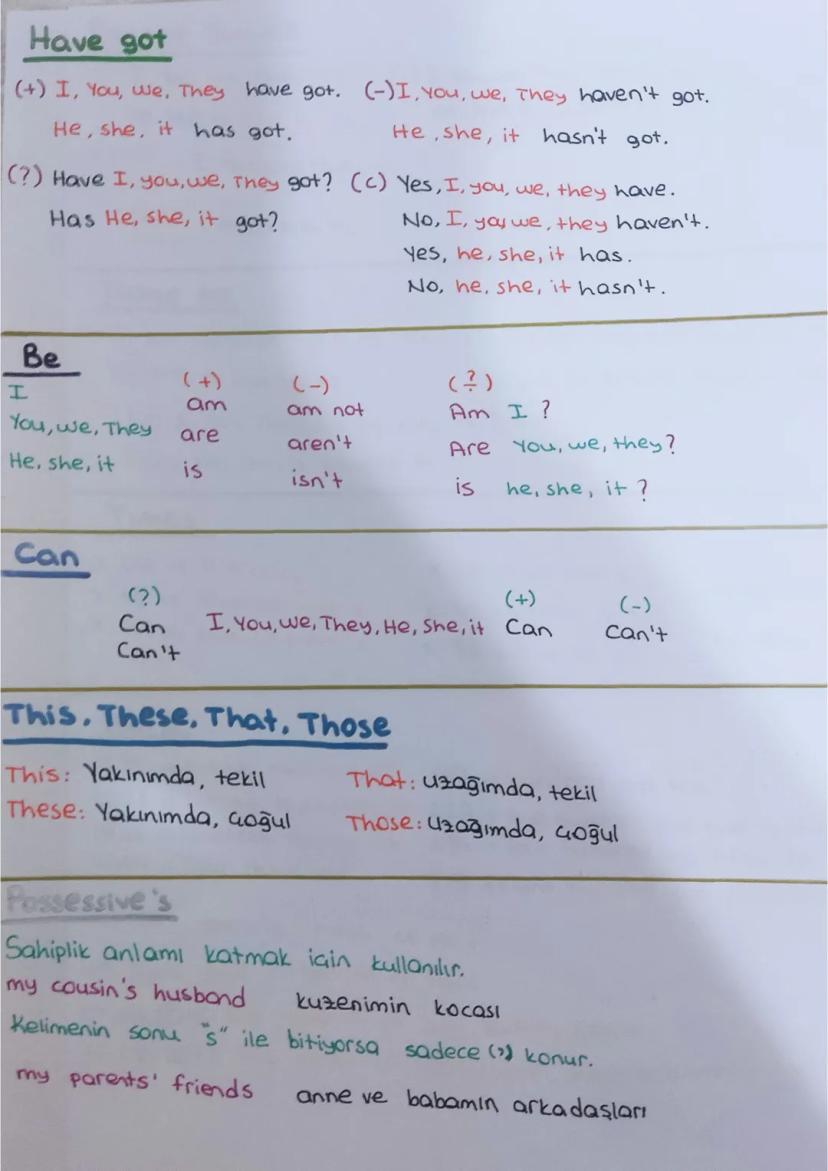 Have got
(+) I, You, we, They have got. (-) I, you, we, They haven't got.
He, she, it has got. He, she, it hasn't got.
(?) Have I, you, we, They got? (c) Yes, I, you, we, they have.
Has He, she, it got? No, I, you we, they haven't.
Yes, he, she, it has.
No, he, she, it hasn't.
Be
(+) (-) (?)
I am am not Am I ?
You, we, They are aren't Are You, we, they?
He, she, it is isn't is he, she, it ?
Can
(?) (+) (-)
Can I, You, we, They, He, She, it Can Can't
Can't
This, These, That, Those
This: Yakınımda, tekil That: uzağımda, tekil
These: Yakınımda, çoğul Those: Uzağımda, çoğul
Possessive's
Sahiplik anlamı katmak için kullanılır.
my cousin's husband kuzenimin kocası
Kelimenin sonu "s" ile bitiyorsa sadece (') konur.
my parents' friends anne ve babamın arkadaşları